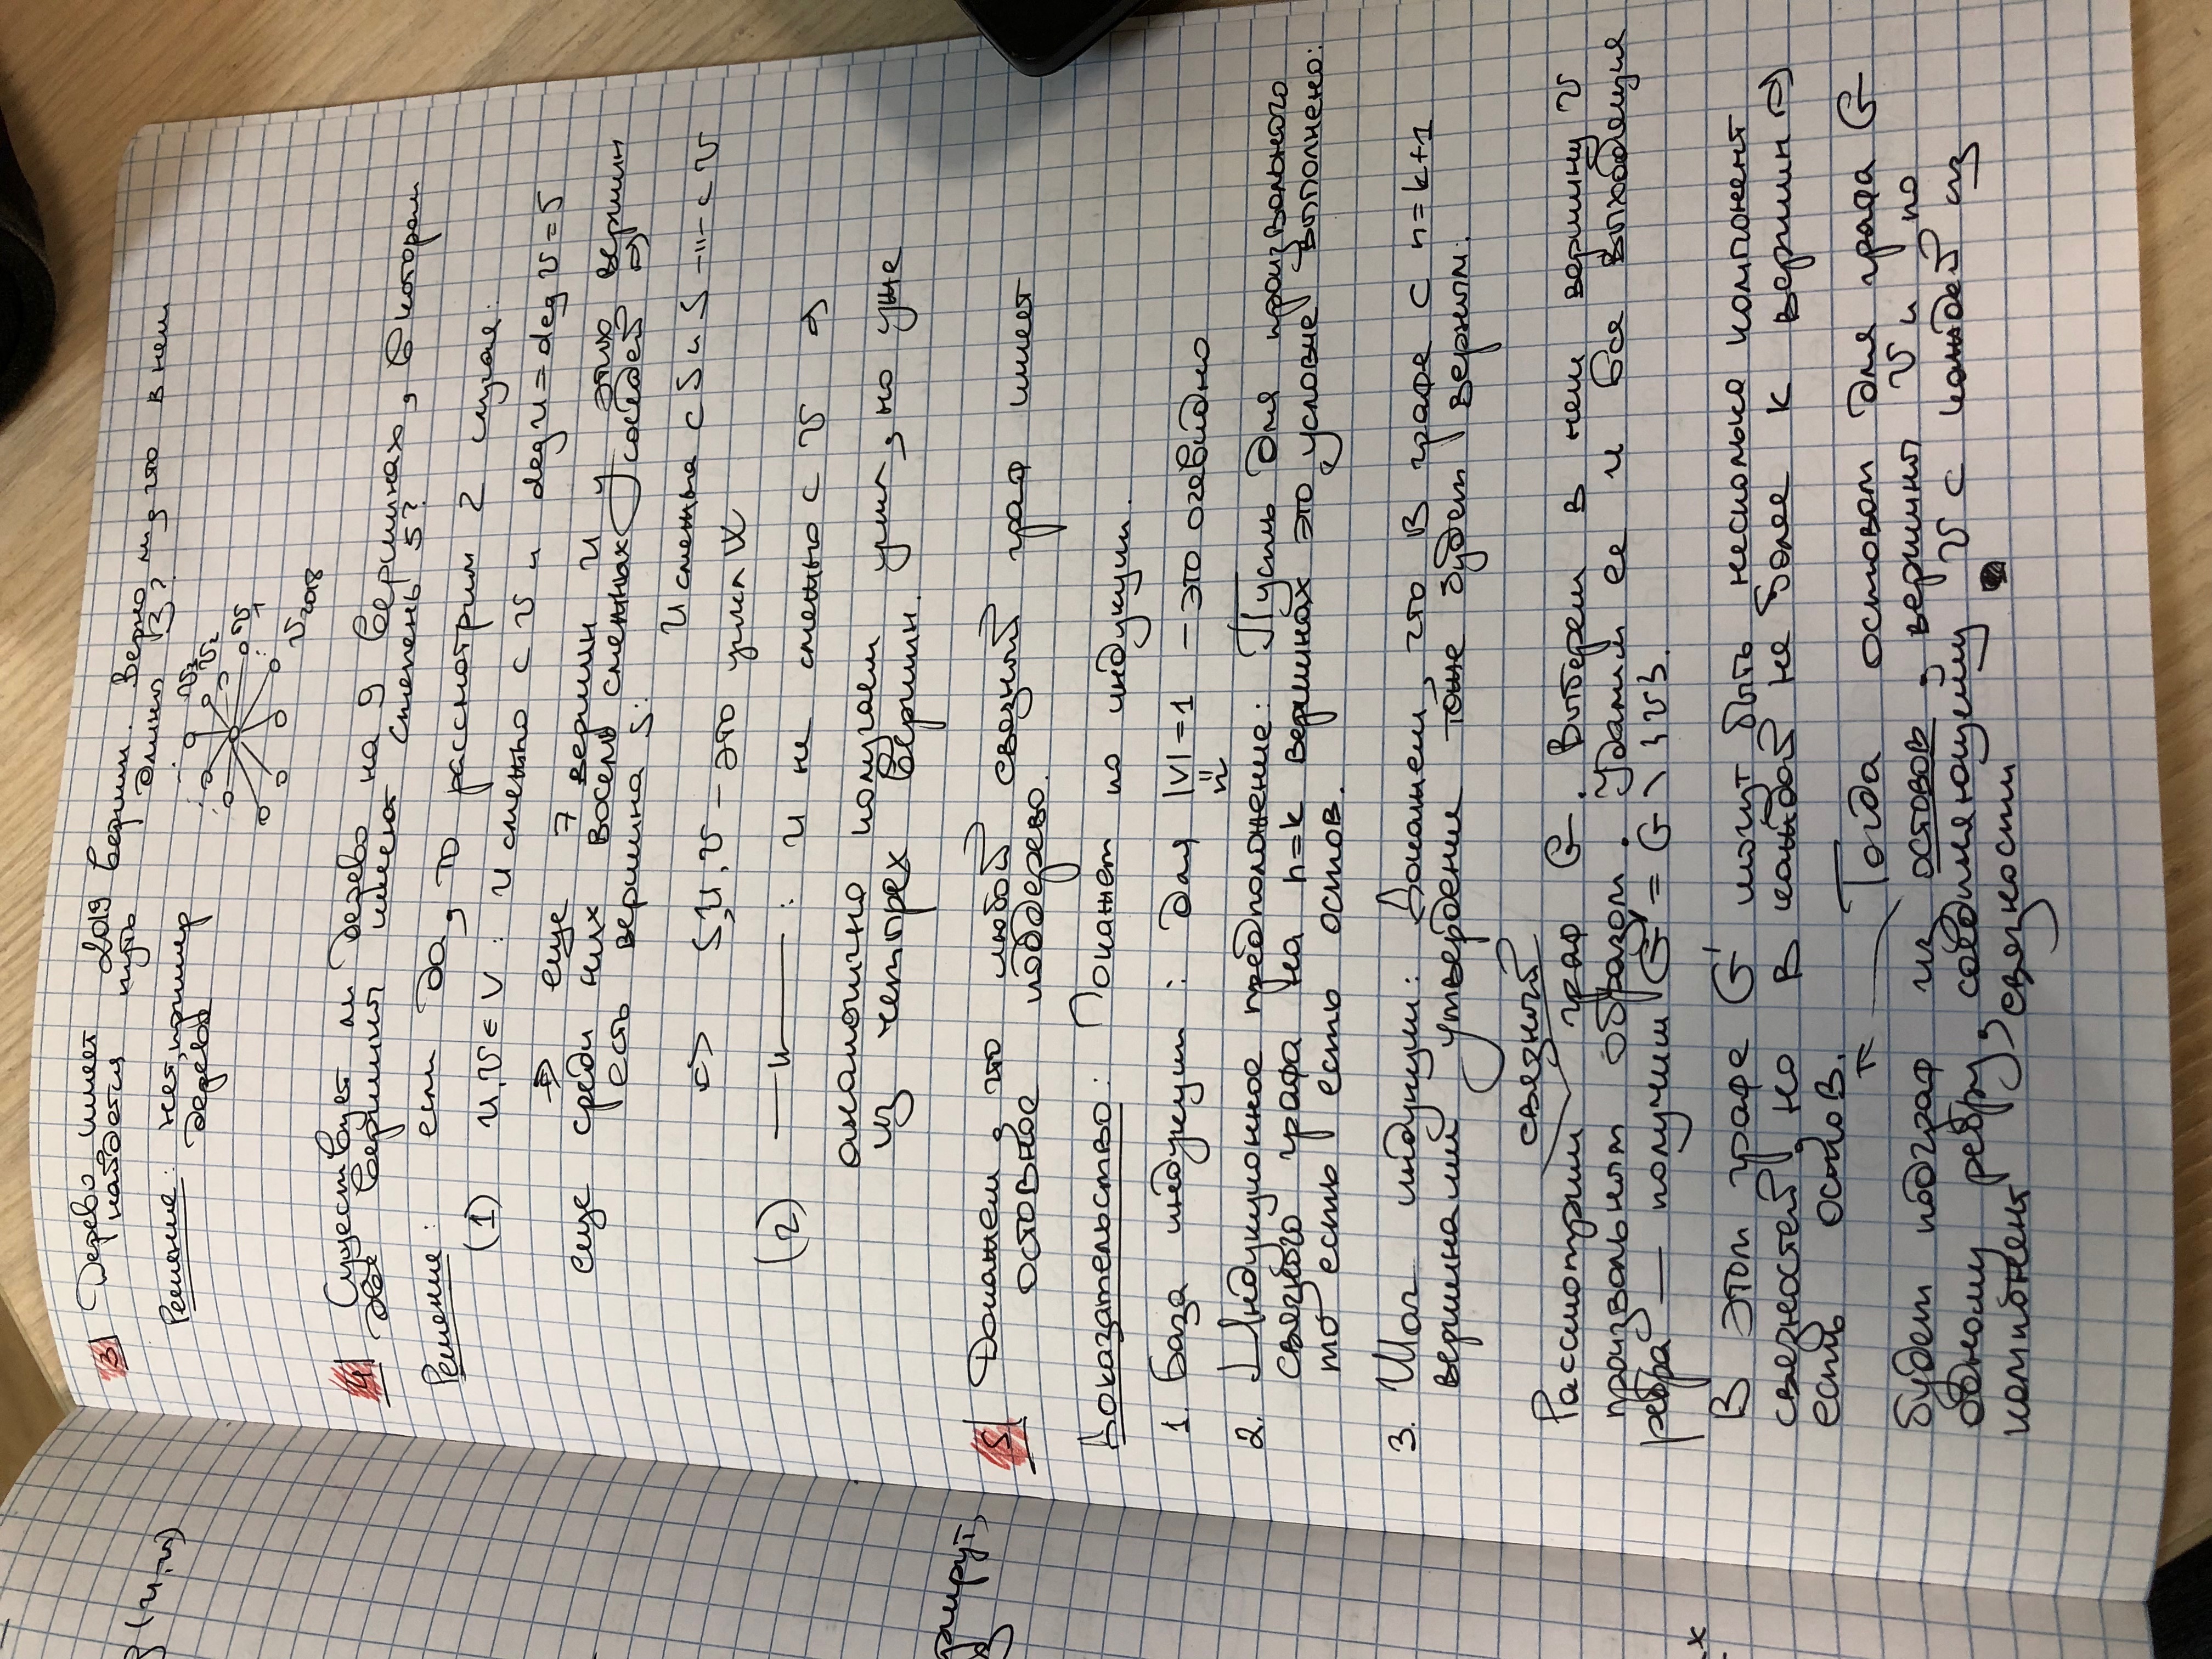 з (u,v)
3) Дерево имеет 2019 вершин. Верно ли, что в нем
найдется путь длины 3?
Решение: нет, пример
дерева
v₃
v₂
v₁
v₂₀₁₈
4) Существует ли дерево на 9 вершинах, в котором
две вершины имеют степень 5?
Решение: если да, то рассмотрим 2 случая:
(1) u, v ∈ V: u смежно с v и deg u = deg v = 5
⇒ еще 7 вершин и у этих вершин
еще среди них восемь смежных соседей ⇒
есть вершина S:
u смежна с S и S -"- с v
⇒ S, u, v - это цикл
(2) —"—: u не смежно с v ⇒
аналогично получаем цикл, но уже
из четырех вершин.
5) Докажем, что любой связный граф имеет
остовное поддерево.
Доказательство: Покажет по индукции.
1. База индукции: для |V| = 1 - это очевидно
n
2. Индукционное предположение: Пусть для произвольного
связного графа на n=k вершинах это условие выполнено:
то есть есть остов.
3. Шаг индукции: Докажем, что в графе с n=k+1
вершинами утвердение тоже будет верным:
связный
Рассмотрим граф G. Выберем в нем вершину v
произвольным образом. Удалим ее и все выходящие
ребра — получим G' = G \ {v}.
В этом графе G' могут быть несколько компонент
связностей, но в каждой не более k вершин ⇒
есть остов.
Тогда остовом для графа G
будет подграф из остовов, вершины v и по
одному ребру, соединяющему v с каждой из
компонент связности